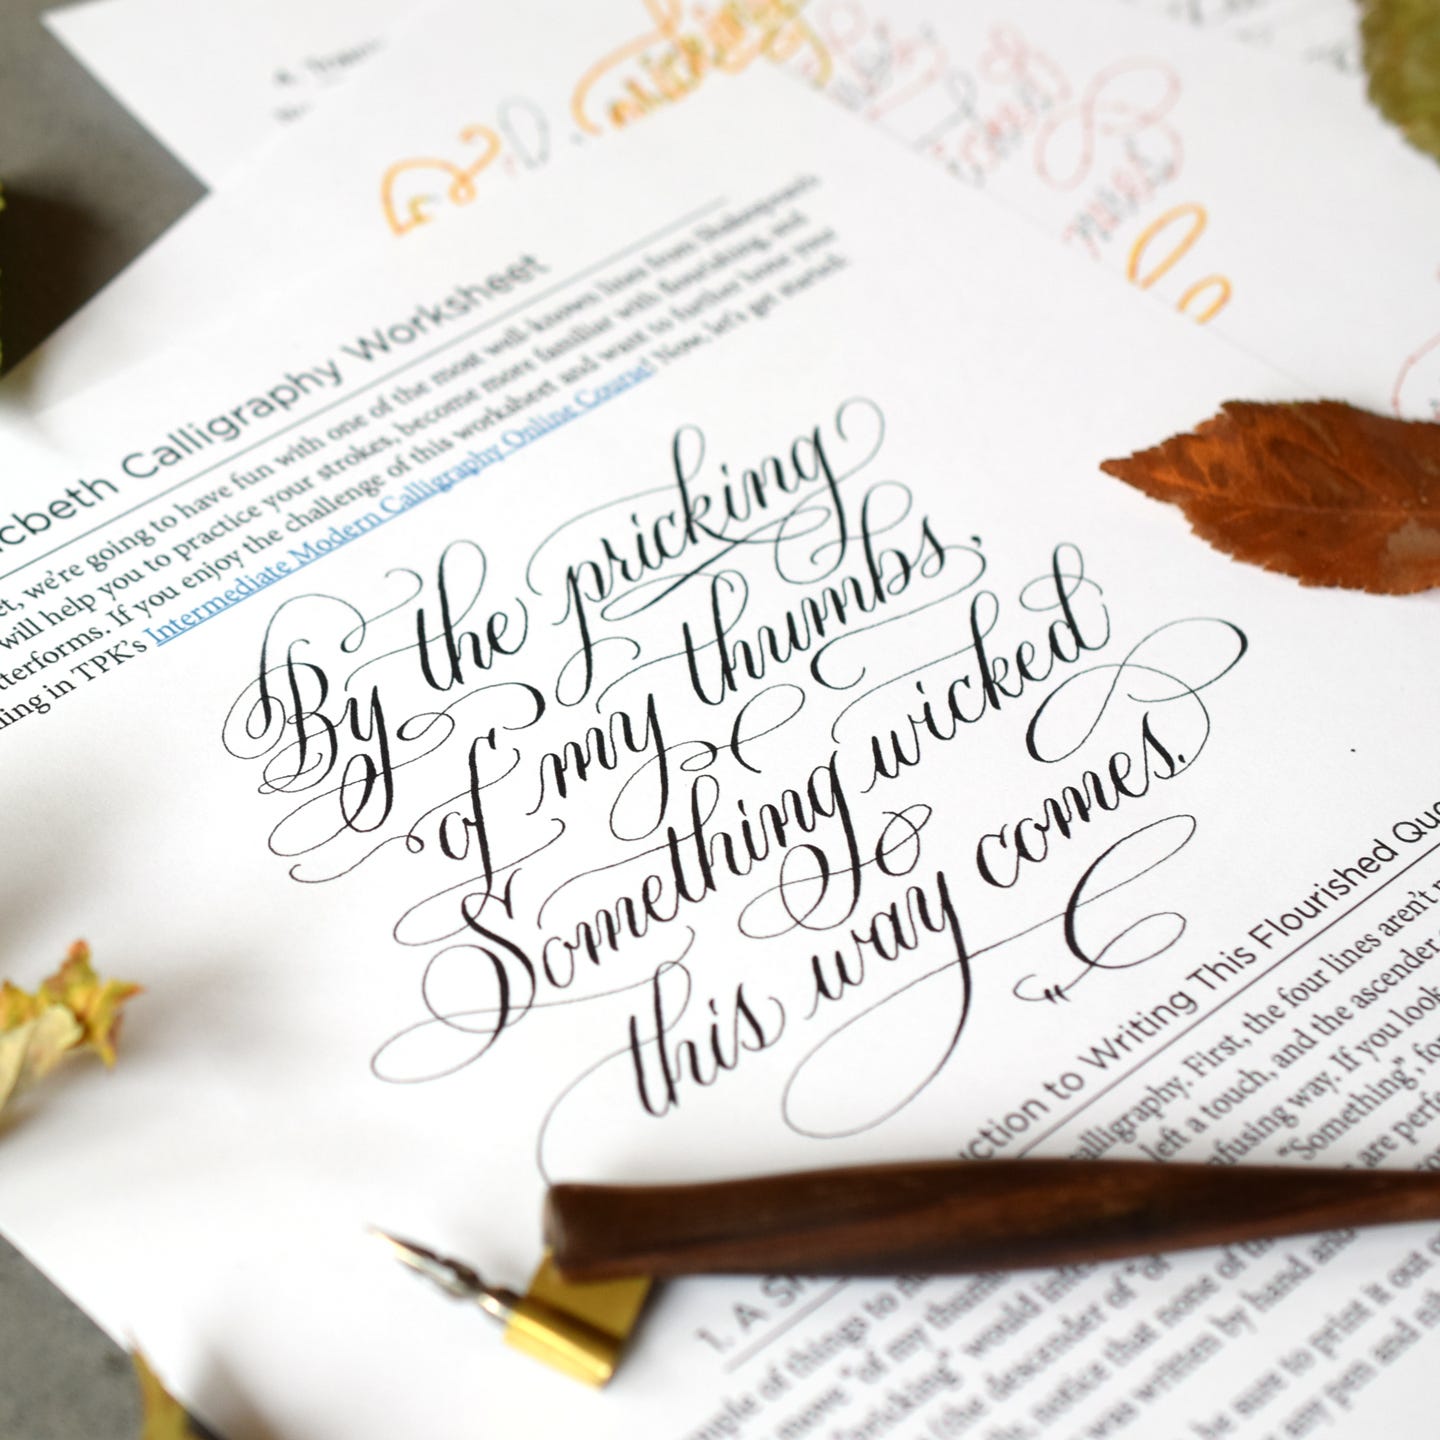 cbeth Calligraphy Worksheet
et, we're going to have fun with one of the most well-known lines from Shakespeare's
will help you to practice your strokes, become more familiar with flourishing, and
tterforms. If you enjoy the challenge of this worksheet and want to further hone your
ing in TPK's Intermediate Modern Calligraphy Online Course! Now, let's get started.
By the pricking
of my thumbs,
Something wicked
this way comes.
ction to Writing This Flourished Quo
alligraphy. First, the four lines aren't
left a touch, and the ascender
nfusing way. If you look
"Something", fo
are perfe
1. A Sh
mple of things to
move "of my thum
pricking" would inte
(the descender of "of
notice that none of th
was written by hand and
be sure to print it out o
any pen and